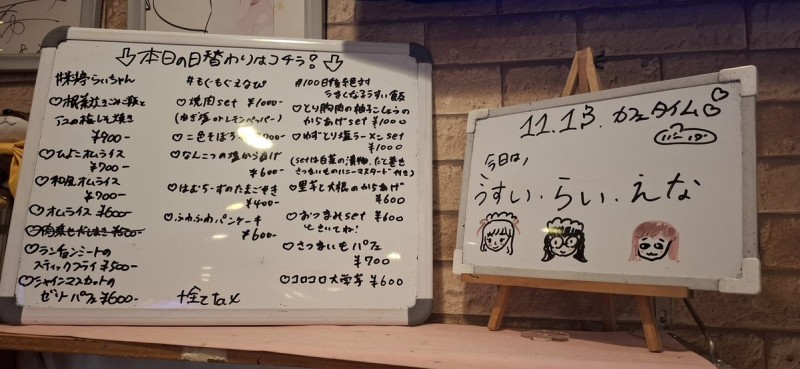 ↓本日の日替わりはコチラ?↓
#米婷らいちゃん
♡根菜炊きこみご飯と
アコの梅しそ焼き
¥900-
♡ひよこオムライス
¥700-
♡和風オムライス
¥700-
♡オムライス ¥600-
¥500-
♡ランチョンミートの
スティックフライ ¥500-
♡シャインマスカットの
ゼリーパフェ ¥600-
#もぐもぐえなぴ
♡焼肉set ¥1000-
(ねぎ塩 or レモンペッパー)
♡二色そぼろ
700-
♡なんこつの塩からあげ
¥600-
♡はむちーずのたまごやき
¥400-
♡ふわふわパンケーキ
¥600-
+全てtax
#100日後絶対
うすくなるうすい飯
♡とり胸肉の柚子こしょうの
からあげset ¥1000
♡ゆずとり塩ラーメンset
¥1000
(setは白菜の漬物、だて巻き
さつまいものハニーマスタード付き)
♡里芋と大根のからあげ
¥600
♡おつまみset ¥600
ときいてね!
♡さつまいもパフェ
¥700
♡コロコロ大学芋 ¥600
11.13. カフェタイム♡
今日は、
うすい.らい.えな